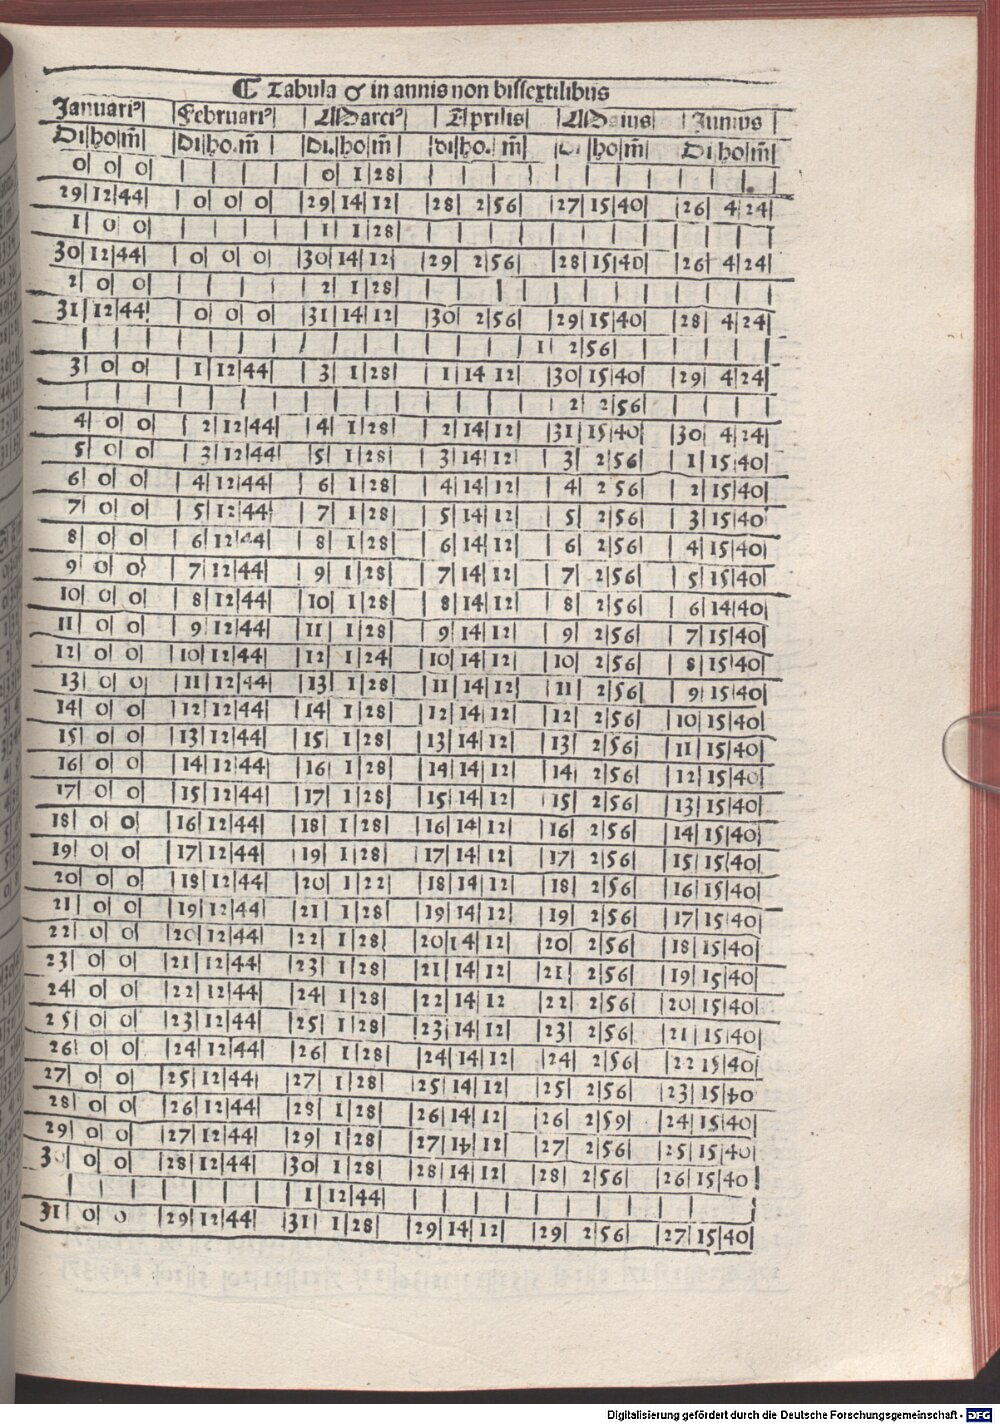 ☾ Tabula ☌ in annis non bissextilibus
Januariꝰ | Februariꝰ | Marciꝰ | Aprilis | Maius | Junius
Di|ho|m̄ | Di|ho.m̄ | Di.|ho|m̄ | di|ho.|m̄ | Di|ho|m̄ | Di|ho|m̄
0| 0| 0 | | | | | 0| 1|28| | | | | | | | | | |
29|12|44| | 0| 0| 0| |29|14|12| |28| 2|56| |27|15|40| |26| 4|24|
1| 0| 0| | | | | | 1| 1|28| | | | | | | | | | |
30|12|44| | 0| 0| 0| |30|14|12| |29| 2|56| |28|15|40| |26| 4|24|
2| 0| 0| | | | | | 2| 1|28| | | | | | | | | | |
31|12|44| | 0| 0| 0| |31|14|12| |30| 2|56| |29|15|40| |28| 4|24|
| | | | | | | | | | | | | | | 1| 2|56| | | | |
3| 0| 0| | 1|12|44| | 3| 1|28| | 1|14 12| |30|15|40| |29| 4|24|
| | | | | | | | | | | | | | | 2| 2|56| | | | |
4| 0| 0| | 2|12|44| | 4| 1|28| | 2|14|12| |31|15|40| |30| 4|24|
5| 0| 0| | 3|12|44| | 5| 1|28| | 3|14|12| | 3| 2|56| | 1|15|40|
6| 0| 0| | 4|12|44| | 6| 1|28| | 4|14|12| | 4| 2 56| | 2|15|40|
7| 0| 0| | 5|12|44| | 7| 1|28| | 5|14|12| | 5| 2|56| | 3|15|40|
8| 0| 0| | 6|12|44| | 8| 1|28| | 6|14|12| | 6| 2|56| | 4|15|40|
9| 0| 0| | 7|12|44| | 9| 1|28| | 7|14|12| | 7| 2|56| | 5|15|40|
10| 0| 0| | 8|12|44| |10| 1|28| | 8|14|12| | 8| 2|56| | 6|14|40|
11| 0| 0| | 9|12|44| |11| 1|28| | 9|14|12| | 9| 2|56| | 7|15|40|
12| 0| 0| |10|12|44| |12| 1|24| |10|14|12| |10| 2|56| | 8|15|40|
13| 0| 0| |11|12|44| |13| 1|28| |11|14|12| |11| 2|56| | 9|15|40|
14| 0| 0| |12|12|44| |14| 1|28| |12|14|12| |12| 2|56| |10|15|40|
15| 0| 0| |13|12|44| |15| 1|28| |13|14|12| |13| 2|56| |11|15|40|
16| 0| 0| |14|12|44| |16| 1|28| |14|14|12| |14| 2|56| |12|15|40|
17| 0| 0| |15|12|44| |17| 1|28| |15|14|12| |15| 2|56| |13|15|40|
18| 0| 0| |16|12|44| |18| 1|28| |16|14|12| |16| 2|56| |14|15|40|
19| 0| 0| |17|12|44| |19| 1|28| |17|14|12| |17| 2|56| |15|15|40|
20| 0| 0| |18|12|44| |20| 1|22| |18|14|12| |18| 2|56| |16|15|40|
21| 0| 0| |19|12|44| |21| 1|28| |19|14|12| |19| 2|56| |17|15|40|
22| 0| 0| |20|12|44| |22| 1|28| |20|14|12| |20| 2|56| |18|15|40|
23| 0| 0| |21|12|44| |23| 1|28| |21|14|12| |21| 2|56| |19|15|40|
24| 0| 0| |22|12|44| |24| 1|28| |22|14|12 |22| 2|56| |20|15|40|
25| 0| 0| |23|12|44| |25| 1|28| |23|14|12| |23| 2|56| |21|15|40|
26| 0| 0| |24|12|44| |26| 1|28| |24|14|12| |24| 2|56| |22 15|40|
27| 0| 0| |25|12|44| |27| 1|28| |25|14|12| |25| 2|56| |23|15|40
28| 0| 0| |26|12|44| |28| 1|28| |26|14|12| |26| 2|59| |24|15|40|
29| 0| 0| |27|12|44| |29| 1|28| |27|14|12| |27| 2|56| |25|15|40|
30| 0| 0| |28|12|44| |30| 1|28| |28|14|12| |28| 2|56| |26|15|40|
| | | | | | | | 1|12|44| | | | | | | | | | |
31| 0| 0 |29|12|44| |31| 1|28| |29|14|12| |29| 2|56| |27|15|40|
Digitalisierung gefördert durch die Deutsche Forschungsgemeinschaft - DFG